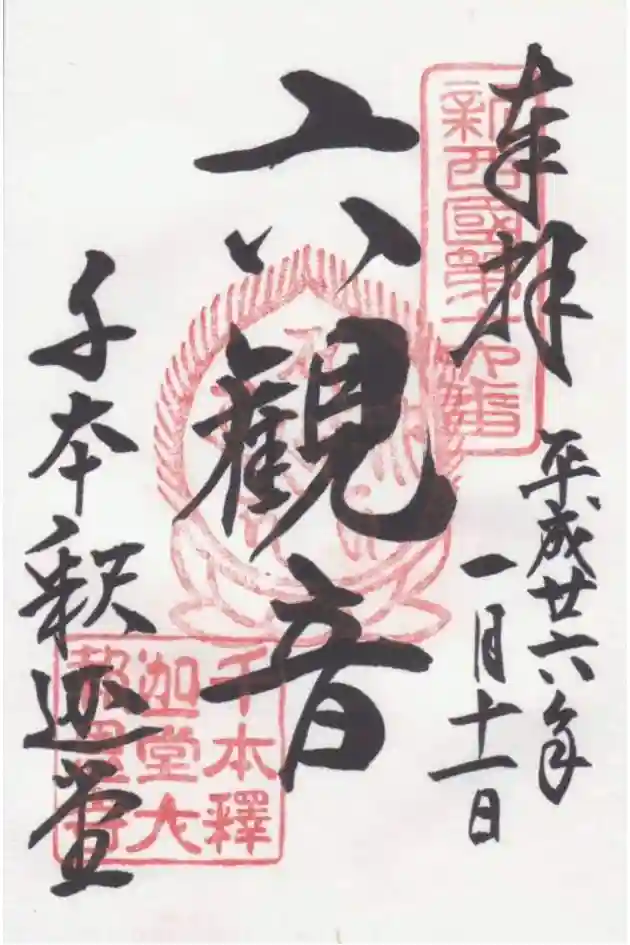 奉拝
新西國第十六番
平成廿六年
一月十一日
六観音
千本釈迦堂
千本釋
迦堂大
報恩寺